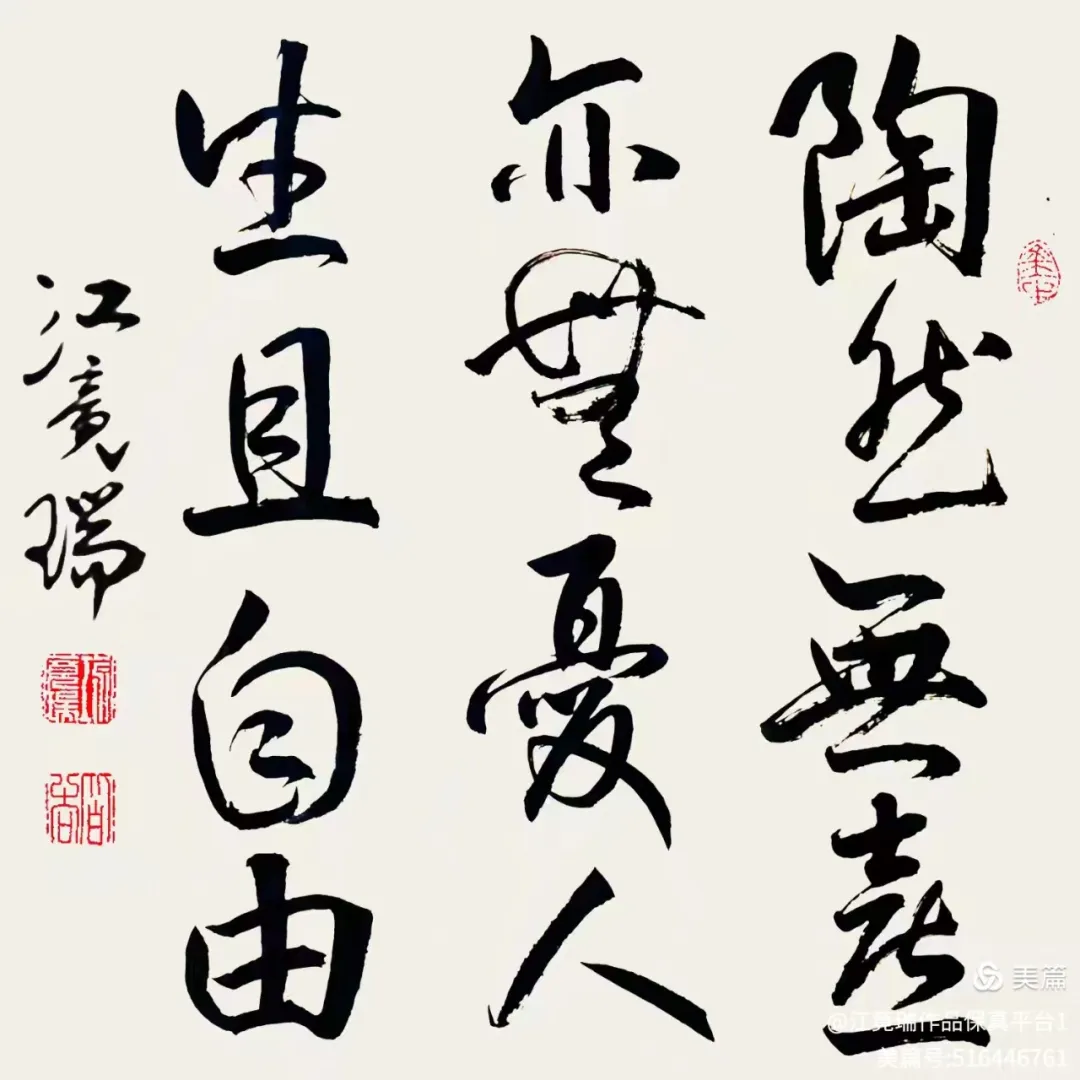 陶然無喜
亦無憂人
生且自由
江竟瑞
美篇
@江竟瑞作品保真平台1
美篇号:516446761